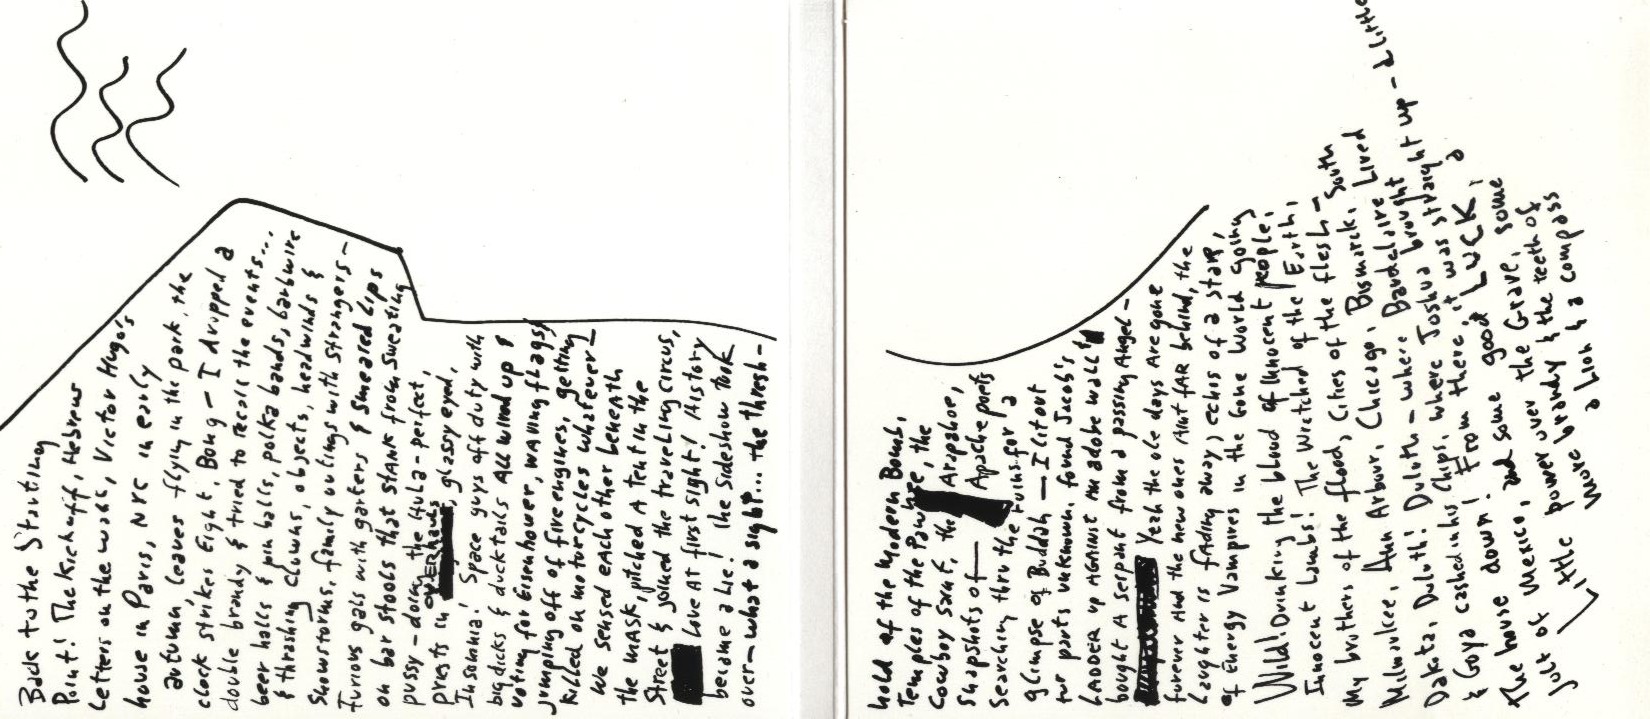 Back to the Starting
Point! The Kickoff, Hebrew
Letters on the wall, Victor Hugo's
house in Paris, NYC in early
autumn, leaves flying in the park, the
clock strikes Eight, Bong – I dropped a
double brandy & tried to recall the events...
beer halls & pin balls, polka bands, barbwire
& thrashing clowns, objects, headwinds &
Snowstorms, family outings with strangers –
Furious gals with garters & smeared lips
on bar stools that stank from sweating
pussy – doing the Hula – perfect,
priests in OVERHAULS, glassy eyed,
Insomnia! Space guys off duty with
big dicks & ducktails All wired up &
voting for Eisenhower, waving flags,
jumping off of fire engines, getting
killed on motorcycles whatever –
We sensed each other beneath
the mask, pitched a tent in the
Street & joined the traveling circus,
Love at first sight! History
became a lie! The sideshow took
over – what a sight... the thresh –
hold of the Modern Bomb,
Temples of the Pawnee, the
Cowboy Saint, the Arapahoe,
Snapshots of Apache poets
searching thru the ruins for a
glimpse of Buddah – I lit out
for parts unknown, found Jacob's
LADDER up AGAINST an adobe wall &
bought A serpent from a passing Angel –
Yeah the ole days Are gone
forever And the new ones Aint fAR behind, the
Laughter is fading away, echos of a stare,
of Energy Vampires in the Gone World going
Wild! Drinking the blood of innocent people,
Innocent Lambs! The Wretched of the Earth,
My brothers of the flood, Cities of the flesh –
Milwaukee, Ann Arbour, Chicago, Bismarck, South
Dakota, Duluth! Duluth – where Baudelaire Lived
& Goya cashed in his Chips, where Joshua brought
The house down! From there, it was straight up – a little
jut of Mexico, and some good LUCK, a
little power over the Grave, some
more brandy & the teeth of
a Lion & a compass